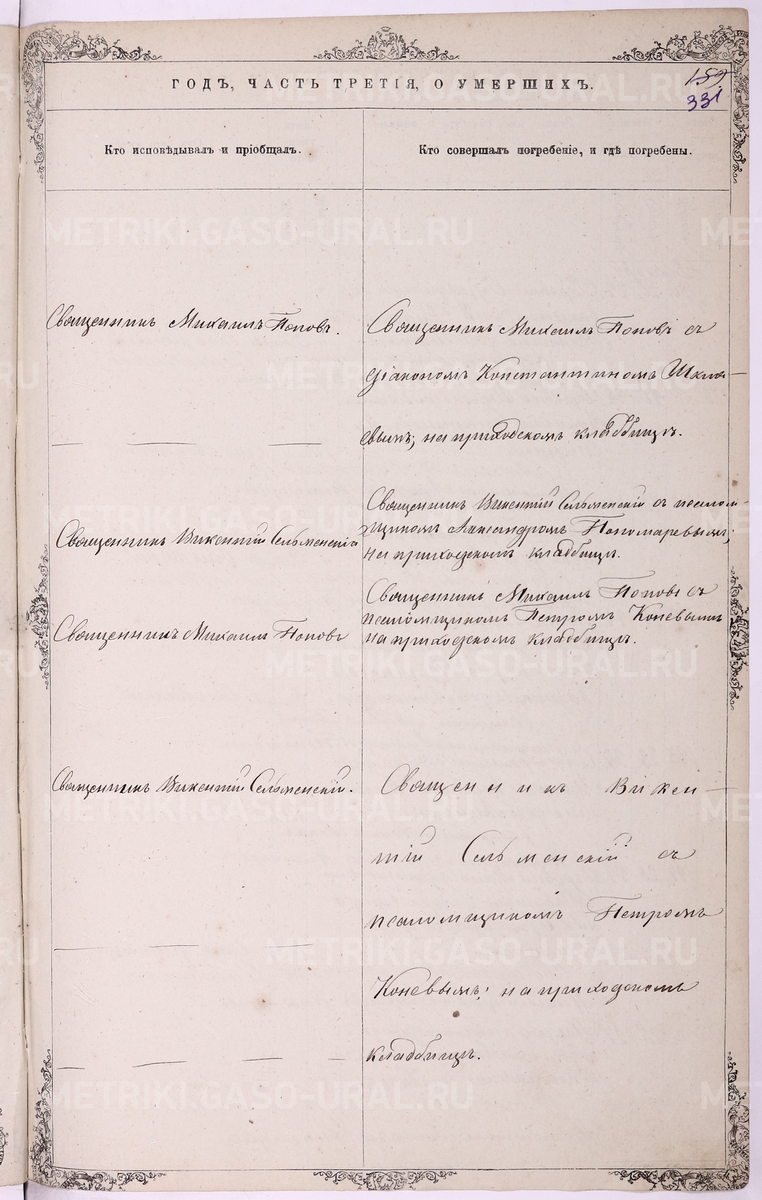 ГОДЪ, ЧАСТЬ ТРЕТІЯ, О УМЕРШИХЪ.
159
331
Кто исповѣдывалъ и пріобщалъ.
Кто совершалъ погребеніе, и гдѣ погребены.
METRIKI.GASO-URAL.RU
Священникъ Михаилъ Поповъ.
Священникъ Михаилъ Поповъ съ
діакономъ Константиномъ
вымъ; на приходскомъ кладбищѣ.
Священникъ Викентій Сельменскій
Священникъ Викентій Сельменскій съ псалом-
щикомъ Александромъ Пономаревымъ;
на приходскомъ кладбищѣ.
Священникъ Михаилъ Поповъ
Священникъ Михаилъ Поповъ съ
псаломщикомъ Петромъ Коневымъ
на приходскомъ кладбищѣ.
Священникъ Викентій Сельменскій.
Священникъ Викен-
тій Сельменскій съ
псаломщикомъ Петромъ
Коневымъ; на приходскомъ
кладбищѣ.